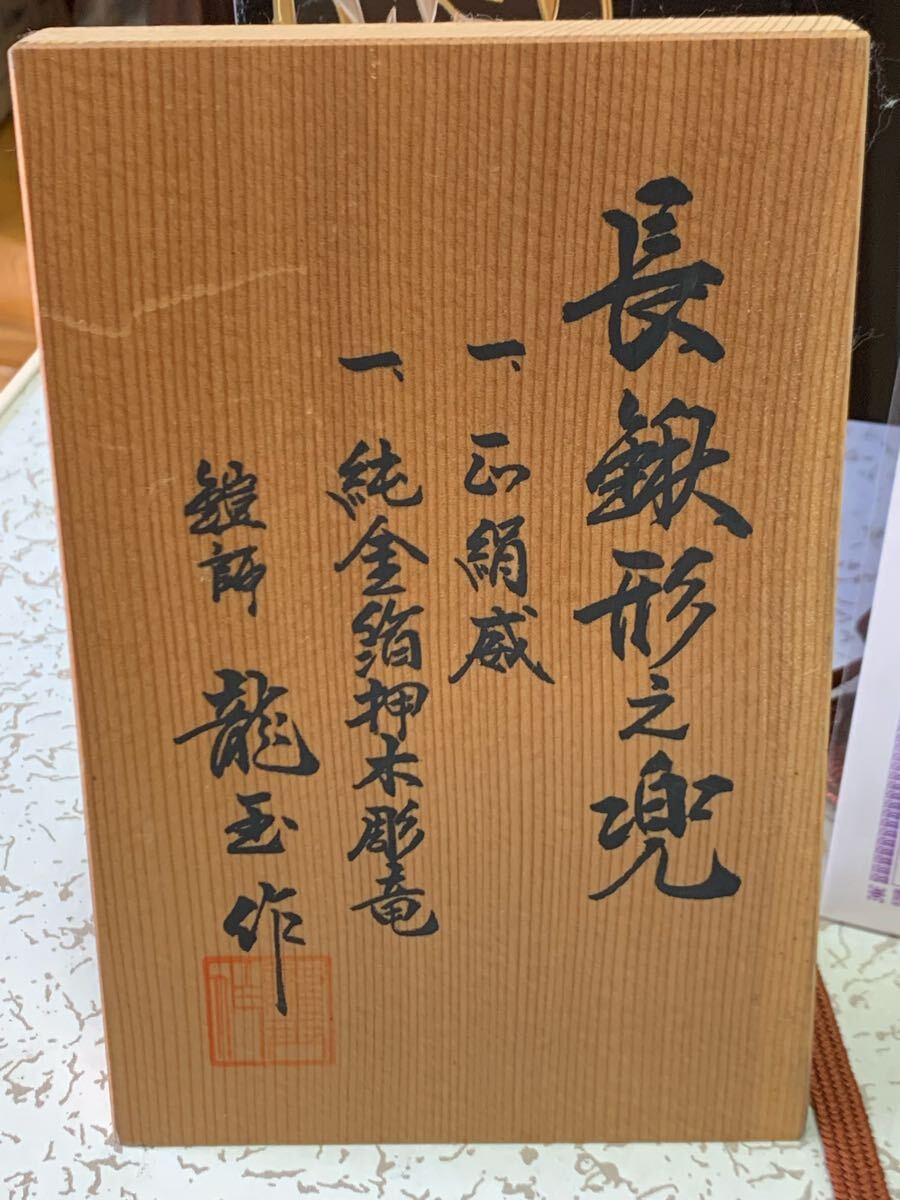 長鍬形之兜
一、正絹威
一、純金箔押木彫竜
鎧師 龍玉作